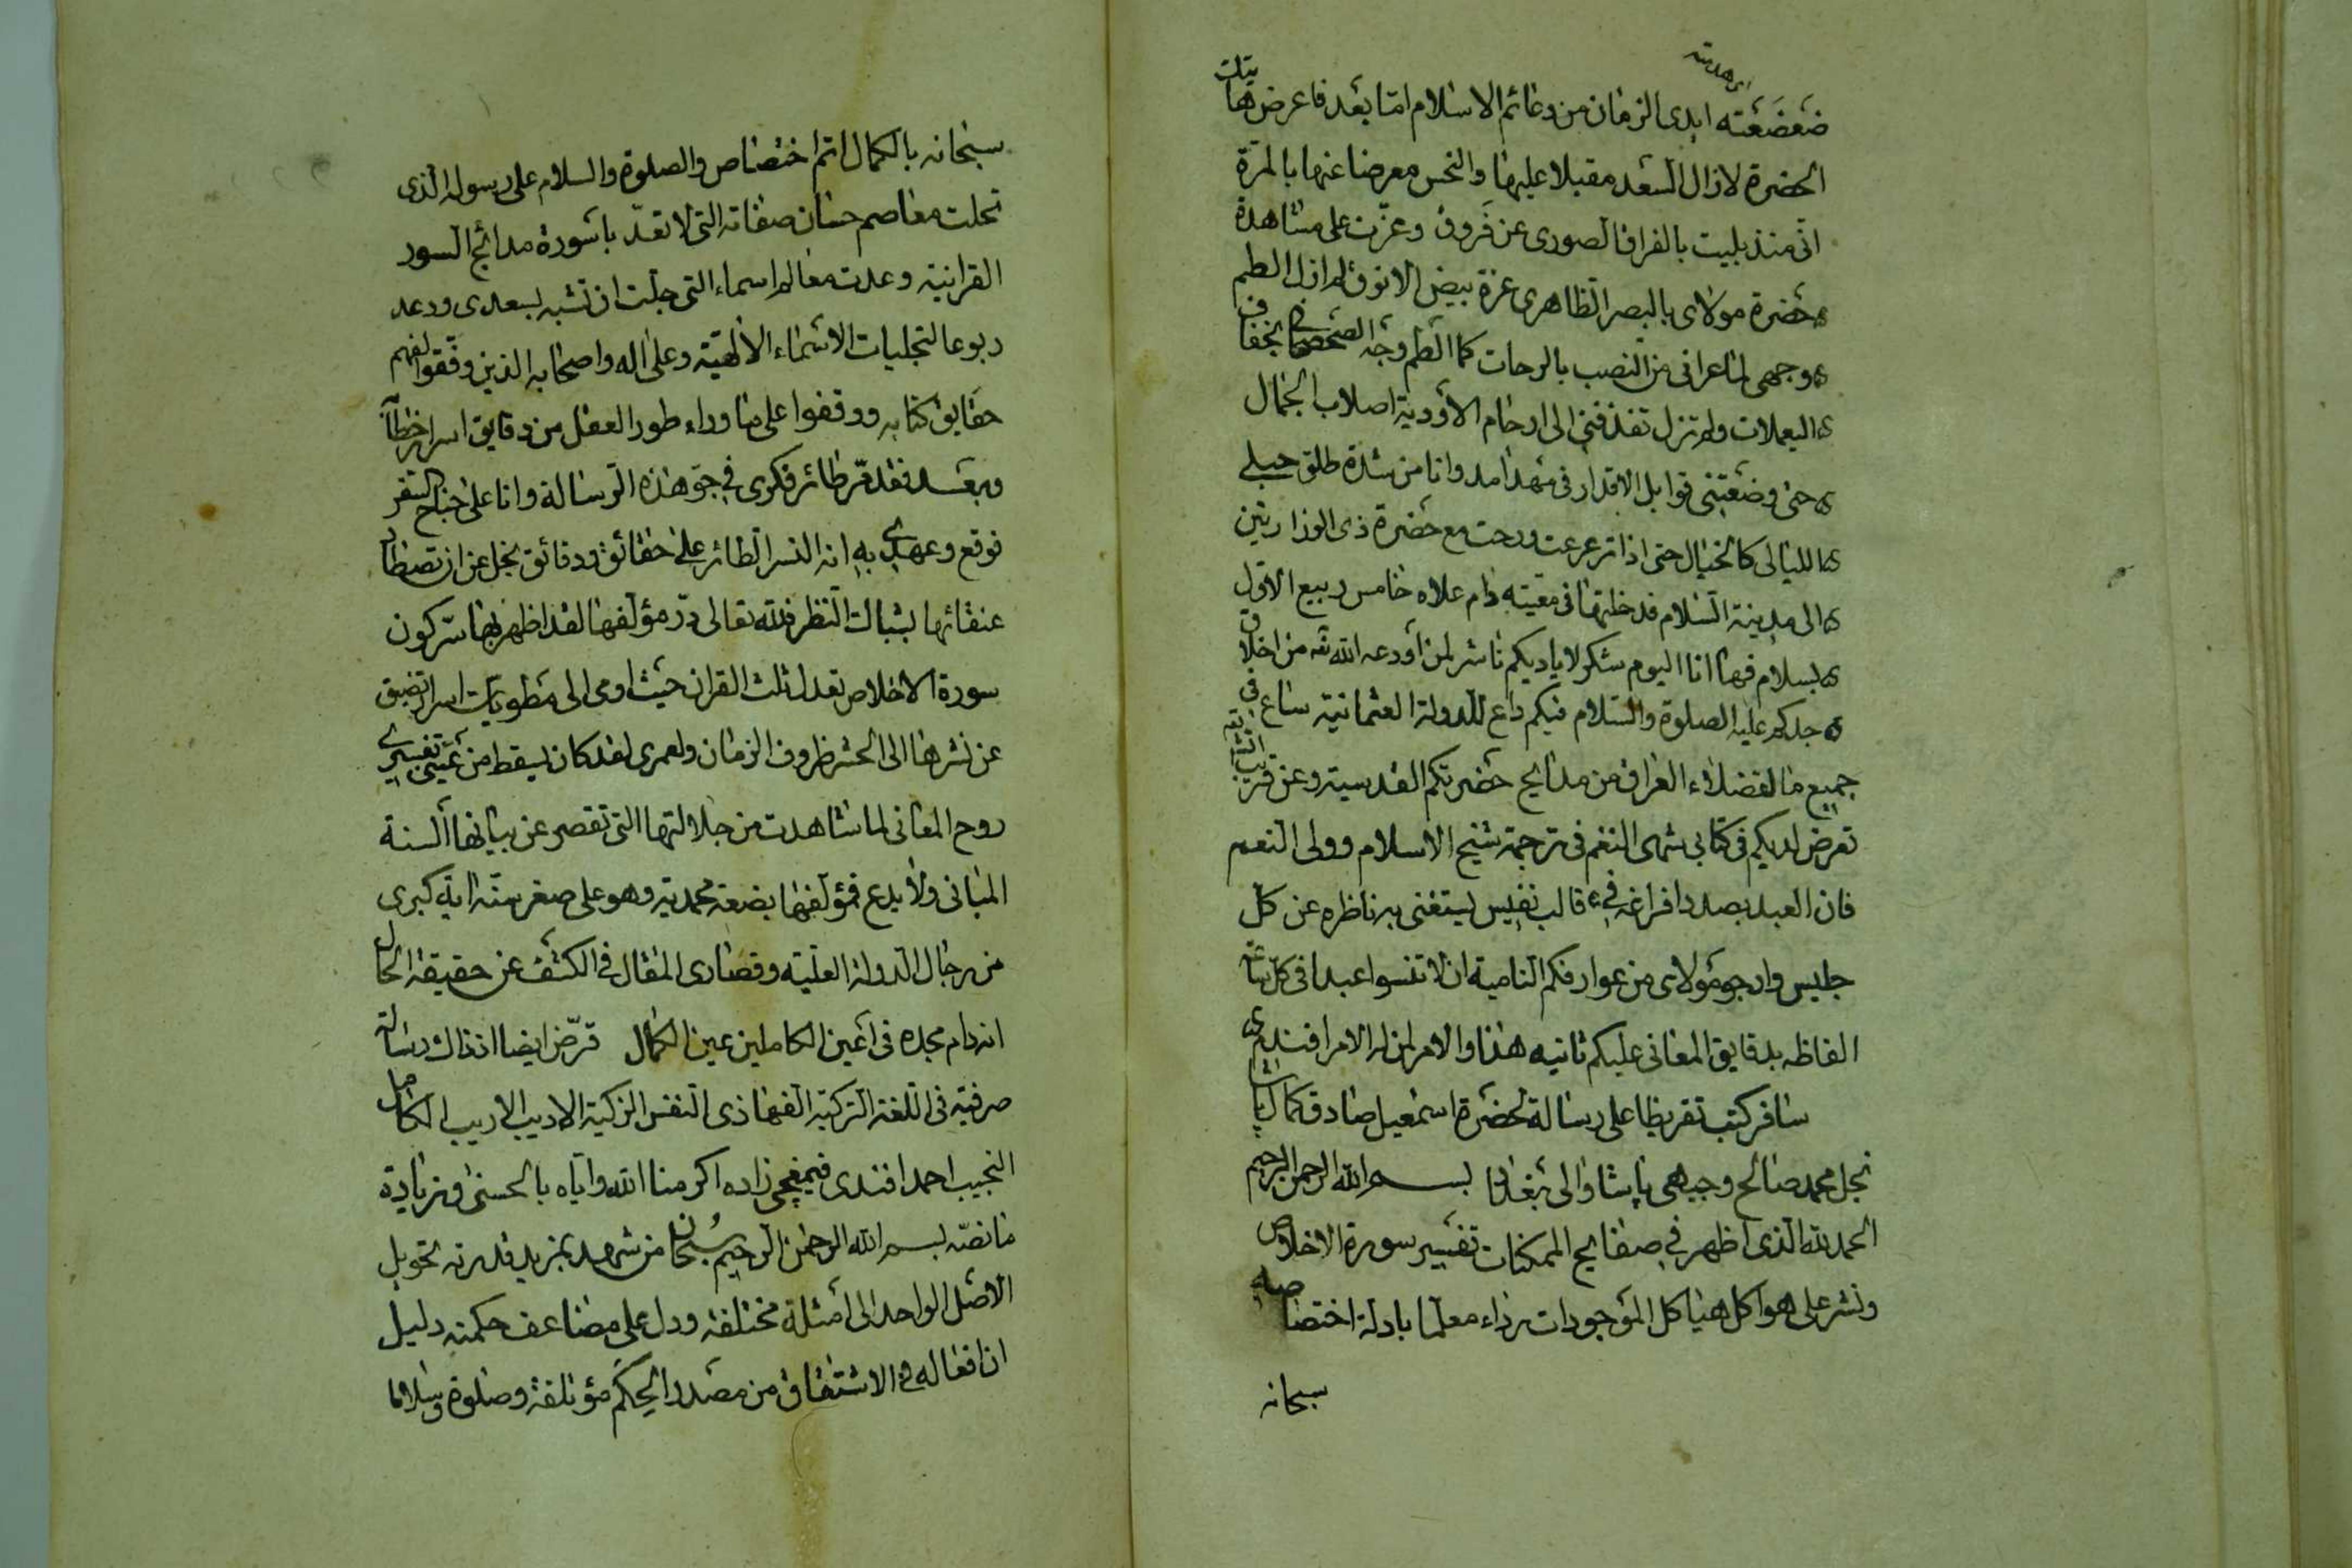 ضعضعته ايدى الزمان من دعائم الاسلام اما بعد فاعرض لهاتيك
الحضرة لازال السعد مقبلا عليها والنحس معرضا عنها بالمرة
انى منذ بليت بالفراق الصورى عن فروق وعزت على مشاهدة
حضرة مولاى بالبصر الظاهرى عزة بيض الانوق لم ازل الطم
وجهى لما عرانى من النصب بالرحات كما الطم وجه الصحصحان بخفاف
اليعملات ولم تزل تقذفنى الى ارحام الاودية اصلاب الجمال
حتى وضعتنى قوابل الاقدار فى مهد امد وانا من شدة طلق حبلى
الليالى كالخيال حتى اذا ترعرعت ورحت مع حضرة ذى الوزارتين
الى مدينة السلام فدخلتها فى معيته دام علاه خامس ربيع الاول
بسلام فها انا اليوم شكر لاياديكم ناشر لمن اودعه الله تعه من اخلاق
جدكم عليه الصلوة والسلام فيكم داع للدولة العثمانية ساع فى
جميع ما لفضلاء العراق من مدايح حضرتكم القدسية وعن قريب
تعرض لديكم فى كتابى شهى النغم فى ترجمة شيخ الاسلام وولى النعم
فان العبد بصدد افراغه فى قالب نفيس يستغنى به ناظره عن كل
جليس وارجو مولاى من عوارفكم النامية ان لا تنسوا عبدا فى كل ساعة
الفاظه بدقايق المعانى عليكم ثانيه هذا والامر لمن له الامر افندم
سافر كتب تقريظا على رسالة لحضرة اسمعيل صادق كمال باشا
نجل محمد صالح وجيهى پاشا والى بغداد بسم الله الرحمن الرحيم
الحمد لله الذى اظهر فى صفايح الممكنات تفسير سورة الاخلاص
ونشر على هواكل هياكل الموجودات رداء معلما بادلة اختصاصه
سبحانه
سبحانه بالكمال اتم اختصاص والصلوة والسلام على رسوله الذى
تحلت معاصم حسان صفاته التى لا تعد باسورة مدائح السور
القرانية وعدت معالم اسماء التى جلت ان تشبه بسعدى ودعد
ربوعا لتجليات الاسماء الالهية وعلى اله واصحابه الذين وفقوا لفهم
حقايق كتابه ووقفوا على ما وراء طور العقل من دقايق اسرار خطابه
وبعد فقد مر طائر فكرى فى جو هذه الرسالة وانا على جناح السفر
فوقع وعهدى به انه النسر الطائر على حقائق ودقائق تجل عن ان تصطاد
عنقائها بشباك النظر فلله تعالى در مؤلفها لقد اظهر بها سر كون
سورة الاخلاص تعدل ثلث القران حيث اومى الى مطويات اسرار تضيق
عن نشرها الى الحشر ظروف الزمان ولعمرى لقد كان يسقط من عينى تفسيرى
روح المعانى لما شاهدت من جلالتها التى تقصر عن بيانها السنة
المبانى ولا بدع فمؤلفها بضعة محمدية وهو على صغر سنه اية كبرى
من رجال الدولة العلية وقصارى المقال فى الكشف عن حقيقة الحال
انه دام مجده فى اعين الكاملين عين الكمال قرض ايضا اذ ذاك رسالة
صرفية فى اللغة التركية الفها ذى النفس الزكية الاديب الاريب الكامل
النجيب احمد افندى قيمقچى زاده اكرمنا الله واياه بالحسنى وزيادة
ما نصه بسم الله الرحمن الرحيم سبحان من شهد بمزيد قدرته تحويل
الاصل الواحد الى امثلة مختلفة ودل على مضاعف حكمته دليل
ان افعاله فى الاشتقاق من مصدر الحكم مؤتلفة وصلوة وسلاما